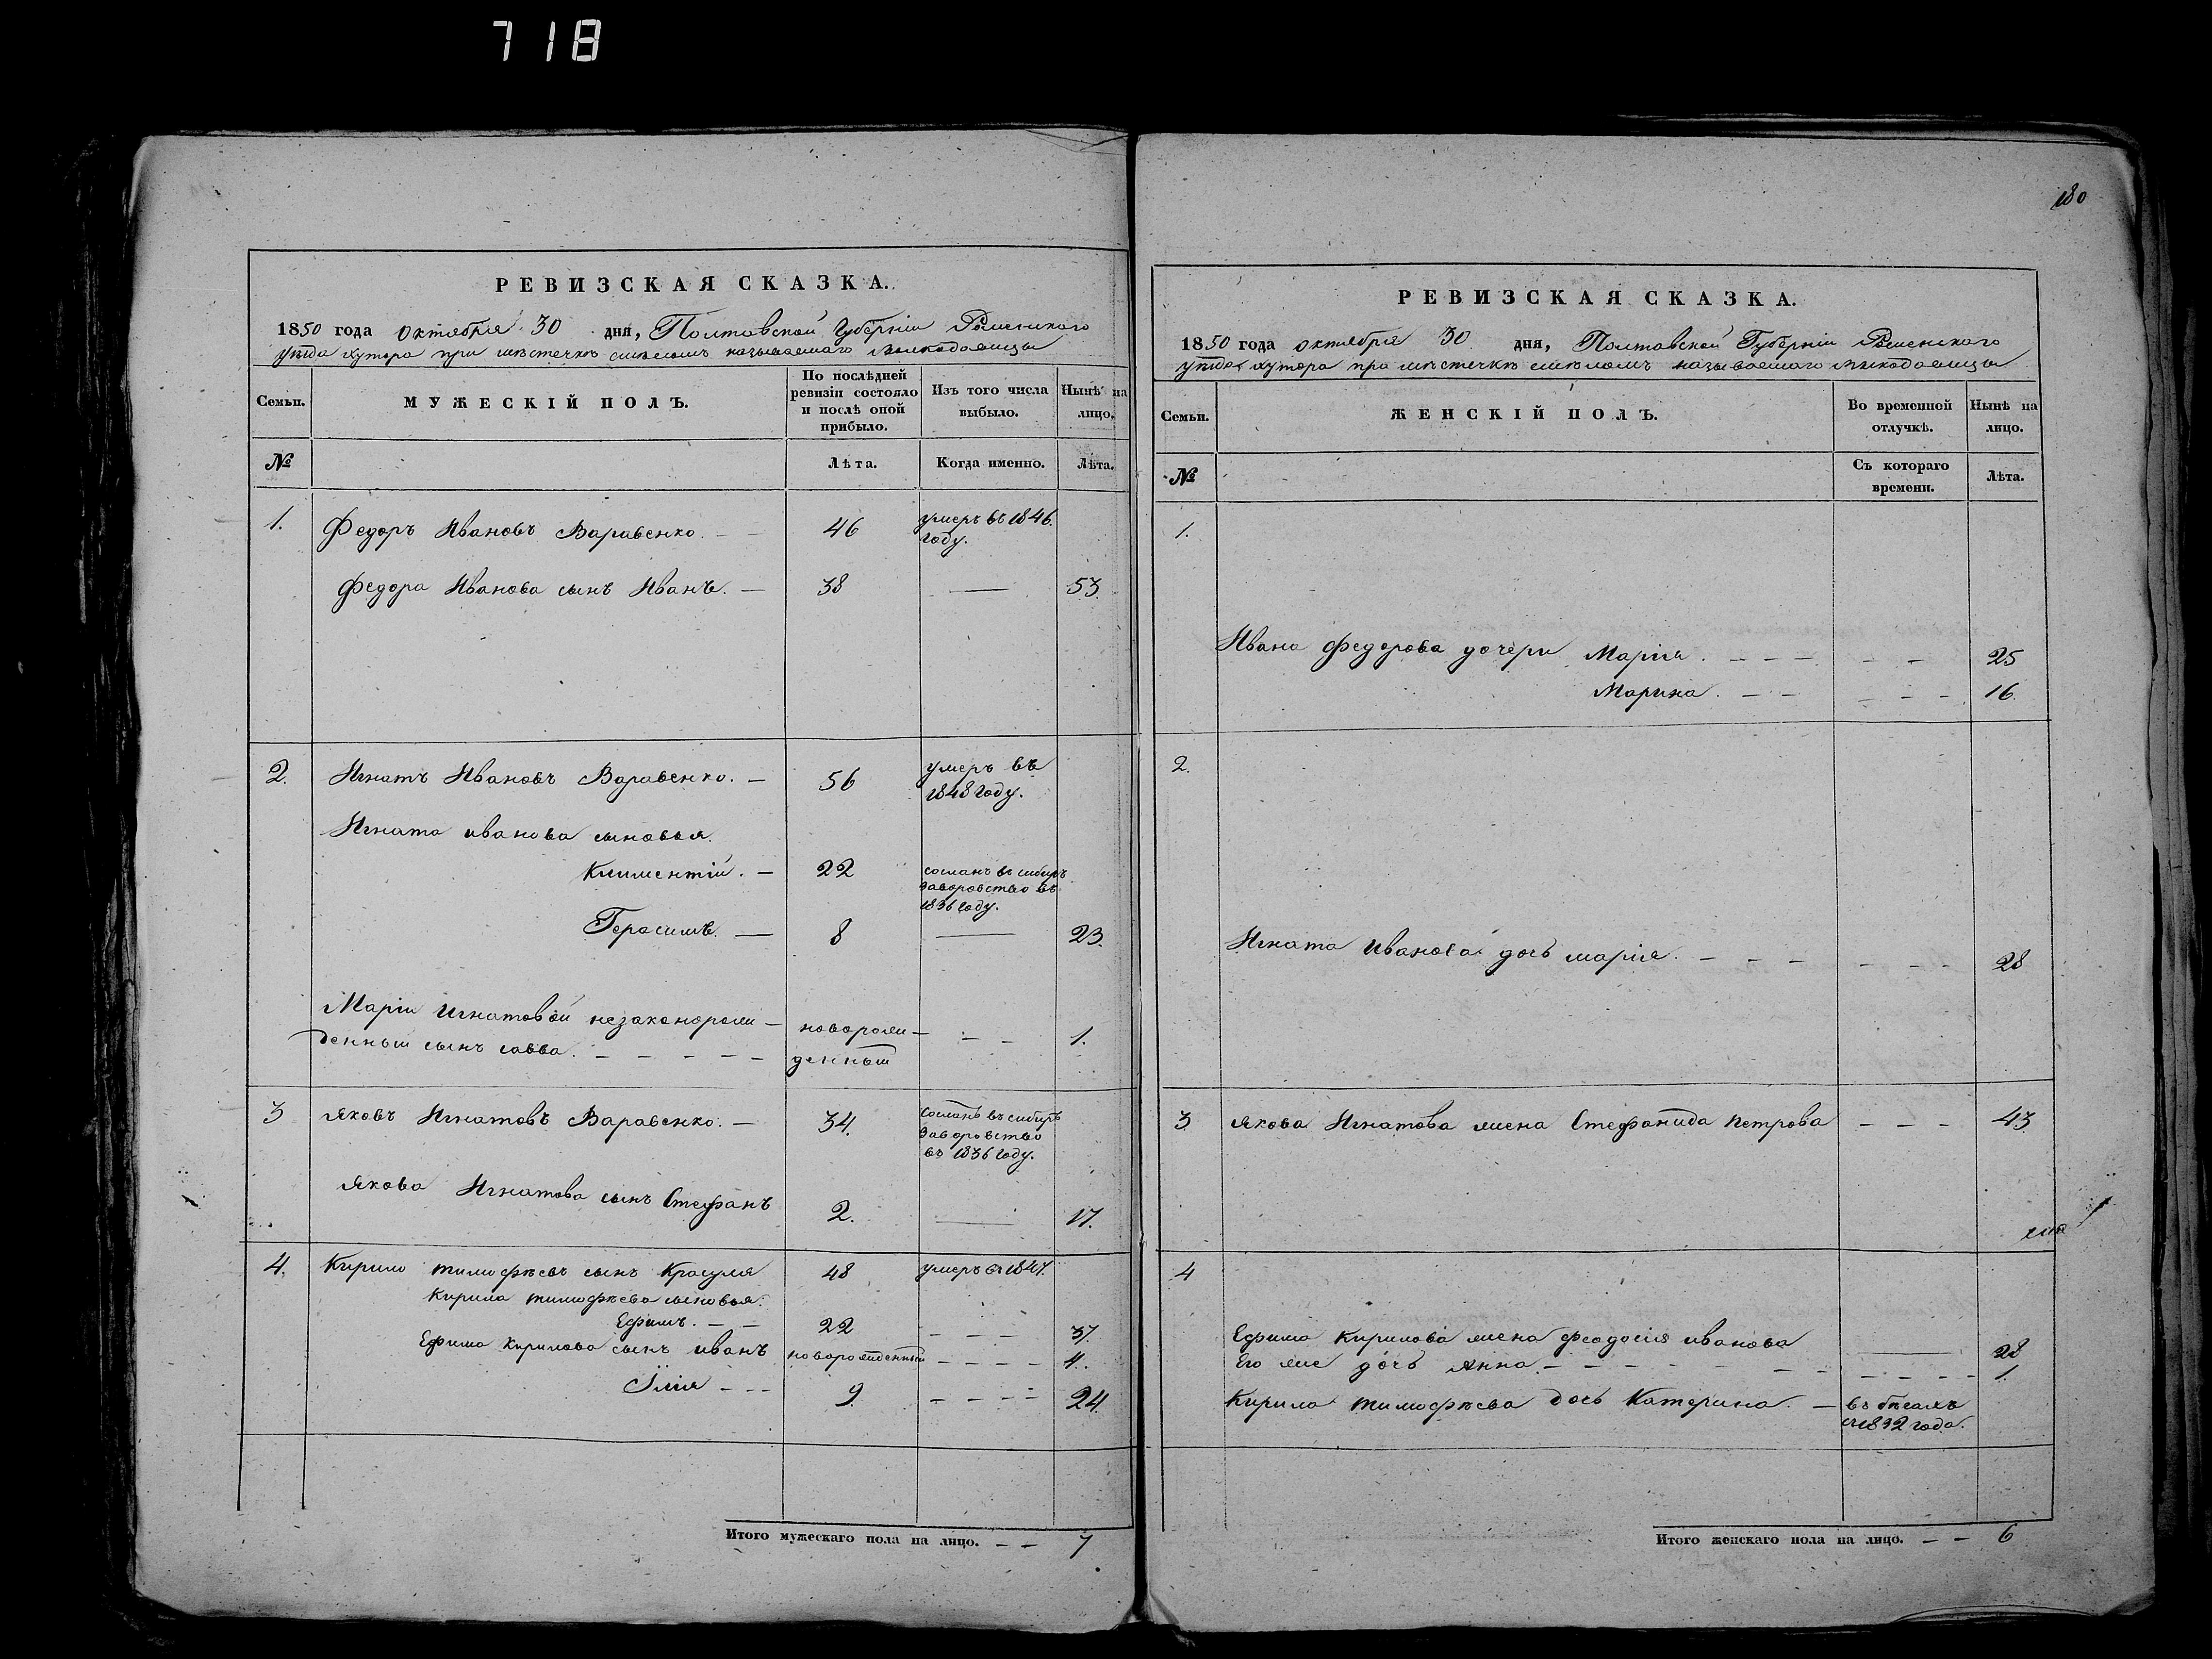 718
180
РЕВИЗСКАЯ СКАЗКА.
1850 года октября 30 дня, Полтавской Губерніи Роменского
уѣзда хутора при мѣстечкѣ смѣломъ называемаго
Семьи.
МУЖЕСКІЙ ПОЛЪ.
По послѣдней ревизіи состояло и послѣ оной прибыло.
Изъ того числа выбыло.
Нынѣ на лицо.
№
Лѣта.
Когда именно.
Лѣта.
1. Федоръ Ивановъ Варавенко. 46 умеръ въ 1846. году.
Федора Иванова сынъ Иванъ. — 38 — 53.
2. Игнатъ Ивановъ Варавенко. — 56 умеръ въ 1848 году.
Игната иванова сыновья.
Климентій. — 22 сосланъ въ сибирь за воровство въ 1836 году.
Герасимъ. — 8 — 23.
Маріи Игнатовой незаконорож- новорож- — — 1.
денный сынъ савва. — — — — — денный
3 Яковъ Игнатовъ Варавенко. — 34. сосланъ въ сибирь за воровство въ 1836 году.
Якова Игнатова сынъ Стефанъ 2. — 17.
4. Кирило тимофѣевъ сынъ Красуля 48 умеръ въ 1847.
Кирила тимофѣева сыновья.
Ефимъ. — — 22 — — — 37.
Ефима Кирилова сынъ иванъ новорожденный — — — — 4.
Илія — — — 9. — — — — 24.
Итого мужескаго пола на лицо. — — 7
РЕВИЗСКАЯ СКАЗКА.
1850 года октября 30 дня, Полтавской Губерніи Роменского
уѣзда хутора при мѣстечкѣ смѣломъ называемаго
Семьи.
ЖЕНСКІЙ ПОЛЪ.
Во временной отлучкѣ.
Нынѣ на лицо.
№
Съ котораго времени.
Лѣта.
1.
Ивана Федорова дочери Марія. — — — — — 25
Марина. — — — — — 16.
2.
Игната Иванова дочь марія. — — — — — — 28
3 Якова Игнатова жена Стефанида Петрова — — — 43.
4
Ефима Кирилова жена феодосія иванова — 28
Его же дочь Анна. — — — — — — — — 1.
Кирила тимофѣева дочь Катерина. — въ бѣгахъ съ 1832 года.
Итого женскаго пола на лицо. — — 6